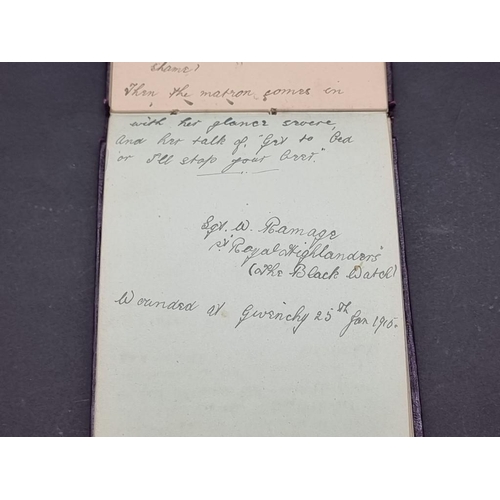 shams!
Then the matron comes in
with her glance severe,
And her talk of, "Get to Bed
or I'll stop your Beer."
Sgt. W. Ramage
"Royal Highlanders"
(The Black Watch)
Wounded at Givenchy 25th Jan 1915.